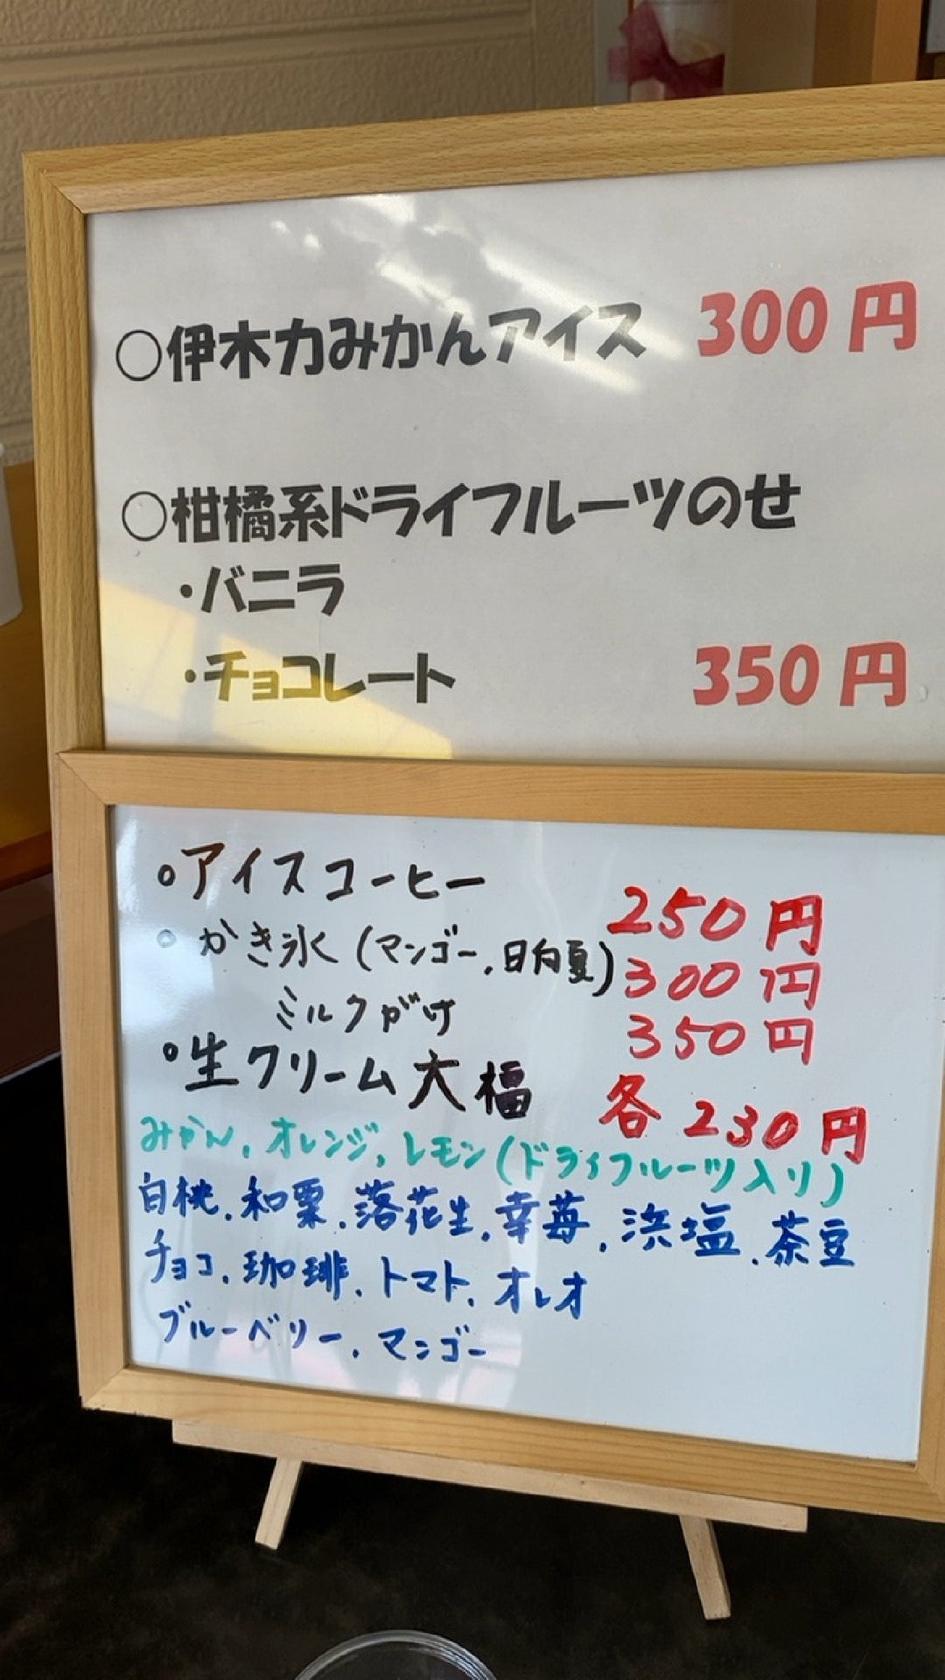 ○伊木力みかんアイス 300円
○柑橘系ドライフルーツのせ
・バニラ
・チョコレート 350円
○アイスコーヒー 250円
○かき氷(マンゴー,日向夏) 300円
ミルクがけ 350円
○生クリーム大福 各230円
みかん,オレンジ,レモン(ドライフルーツ入り)
白桃,和栗,落花生,幸苺,浜塩,茶豆
チョコ,珈琲,トマト,オレオ
ブルーベリー,マンゴー